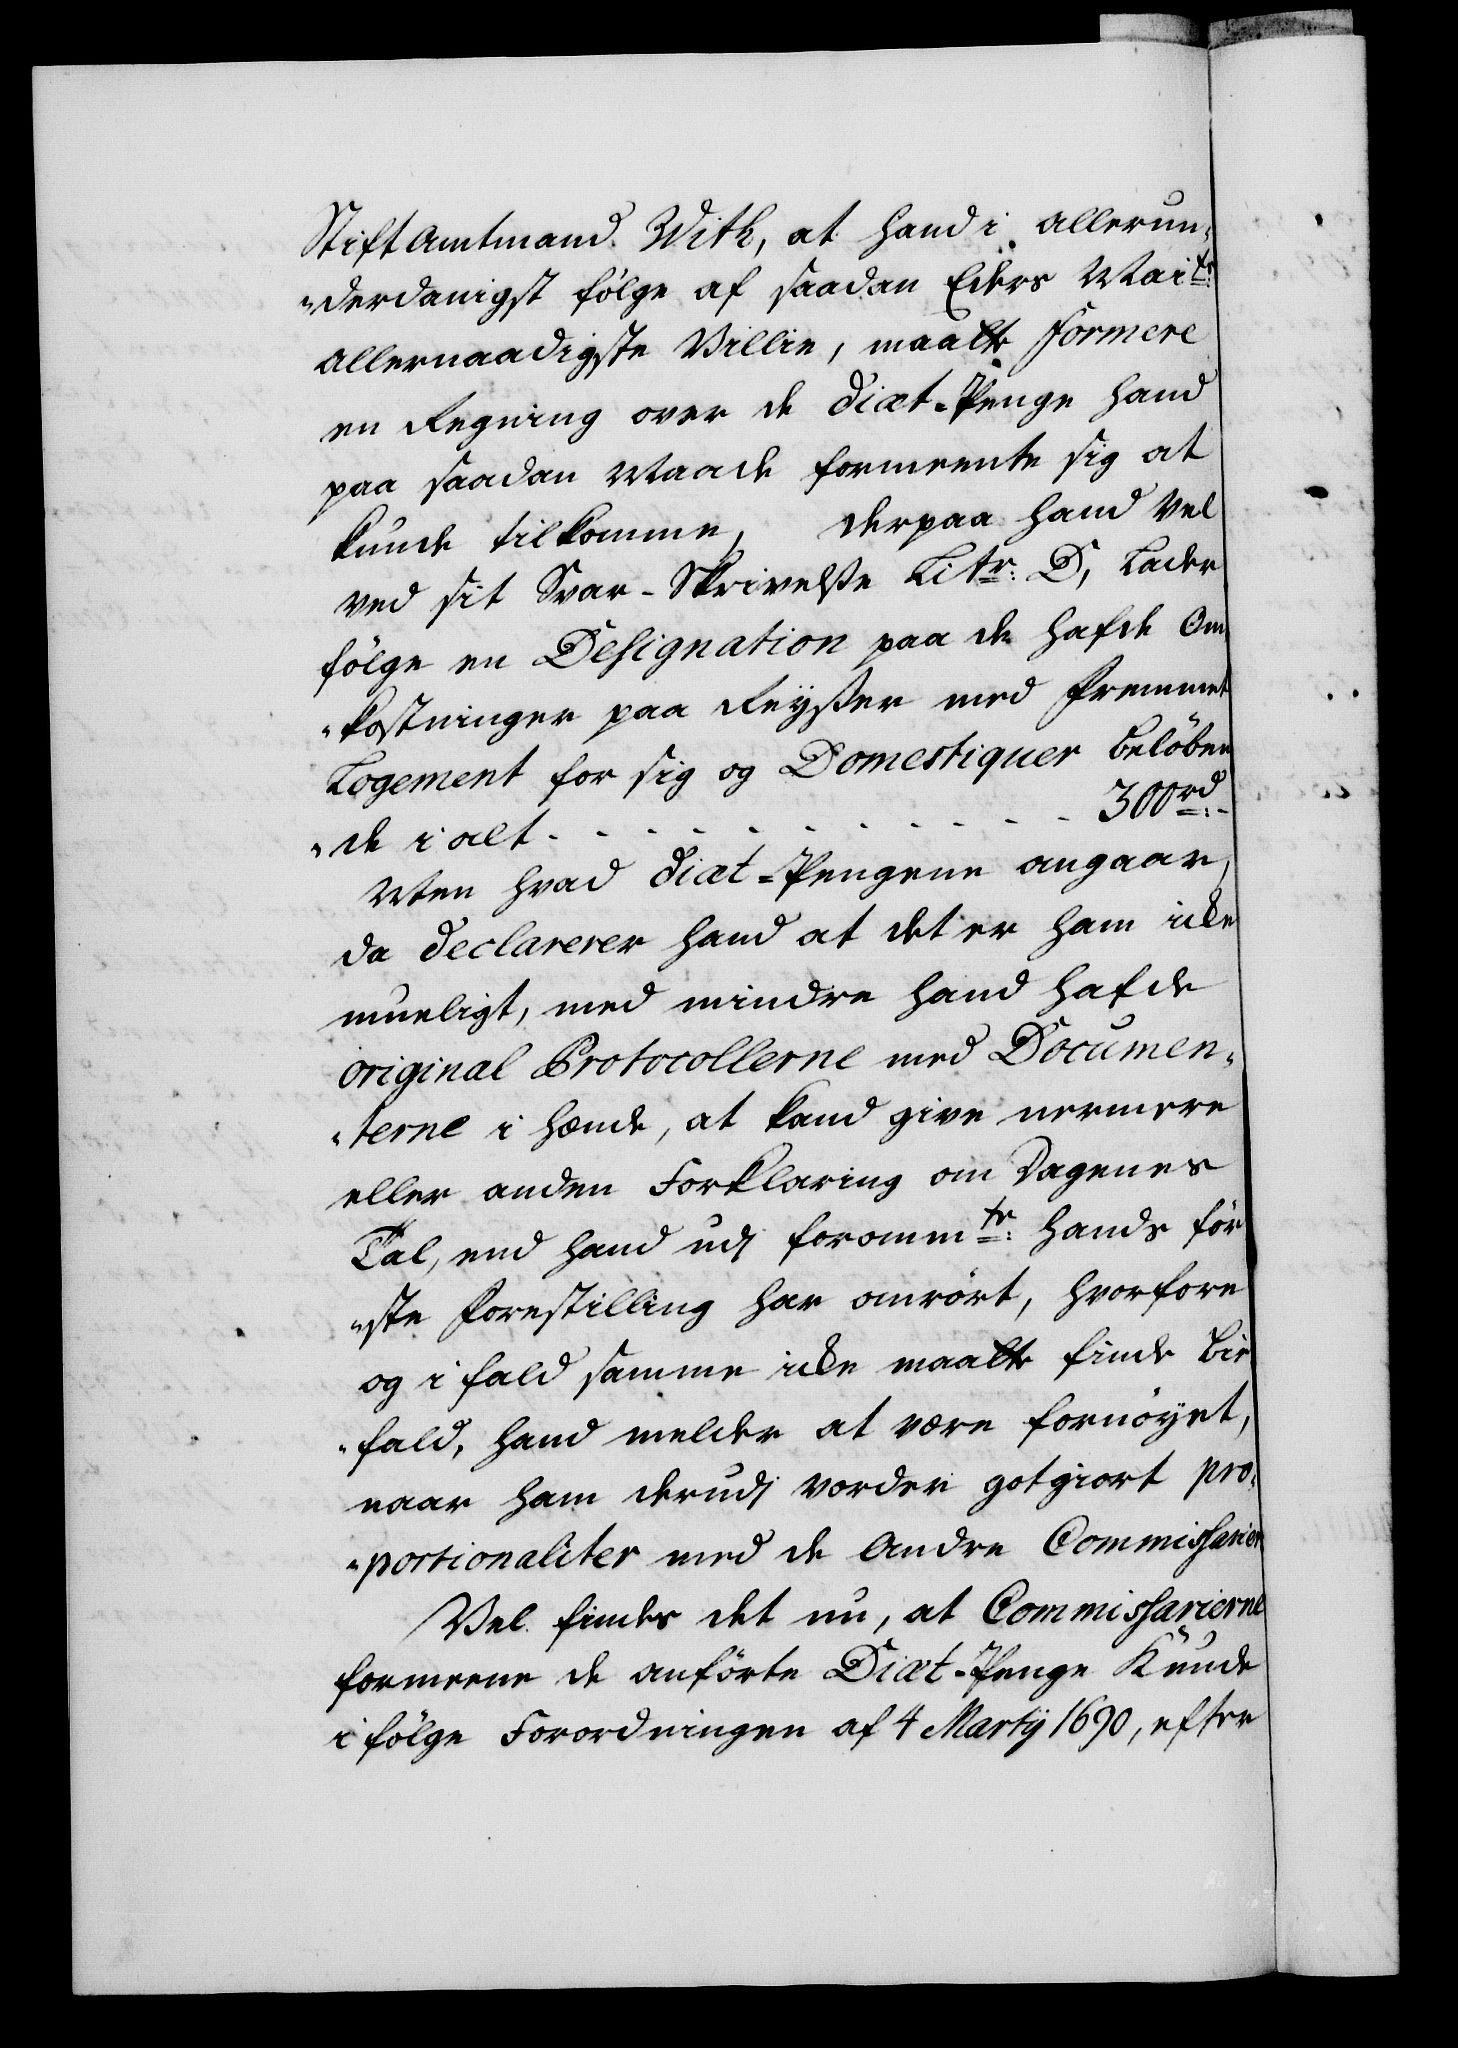 StiftAmtmand With, at hand i allerun-
"derdanigst følge af saadan Eders Mai:ts
allernaadigste Villie, maatte formere
en Regning over de Diæt-Penge hand
paa saadan Maade formeente sig at
kunde tilkomme, derpaa hand vel
ved sit Svar-Skrivelsse Litr: D, lader
følge en Designation paa de hafde Om
"kostninger paa Reysser med fremmet
Logement for sig og Domestiquer beløben
"de i alt - - - - - - - - - - - 300rd:-
Men hvad Diæt-Pengene angaar,
da declarerer hand at det er ham icke
mueligt, med mindre hand hafde
original Protocollerne med Documen-
"terne i hænde, at kand give nermere
eller anden Forklaring om Dagenes
Tal, end hand udj forommte: hands før
"ste Forestilling har omrørt, hvorfore
og i fald samme icke maatte finde bie
"fald, hand melder at være fornøyet,
naar ham derudj vorder gotgiort pro-
"portionaliter med de Andre Commissarier
Vel findes det nu, at Commissarierne
formeene de anførte Diæt-Penge Kunde
i følge Forordningen af 4 Martij 1690, efter